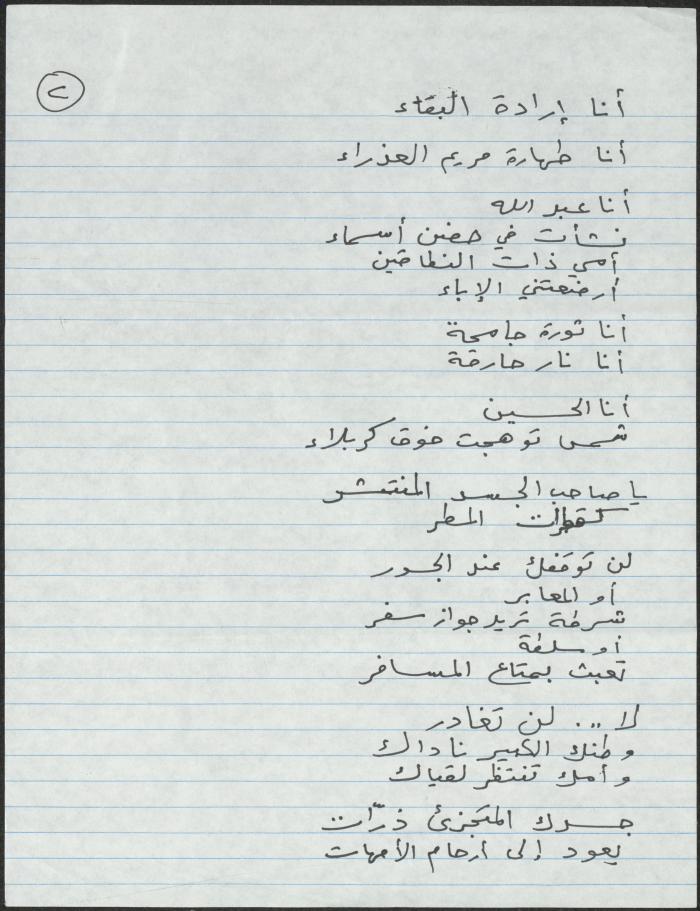 ٢
أنا إرادة البقاء
أنا طهارة مريم العذراء
أنا عبد الله
نشأت في حضن أسماء
أمي ذات النطاقين
أرضعتني الإباء
أنا ثورة جامحة
أنا نار حارقة
أنا الحسين
شمس توهجت فوق كربلاء
يا صاحب الجسد المنتشر
كقطرات المطر
لن توقفك عند الجسور
أو المعابر
شرطة تريد جواز سفر
أو سلطة
تعبث بمتاع المسافر
لا ... لن تغادر
وطنك الكبير ناداك
وأمك تنتظر لقياك
جسدك المتجزئ ذرّات
يعود إلى أرحام الأمهات